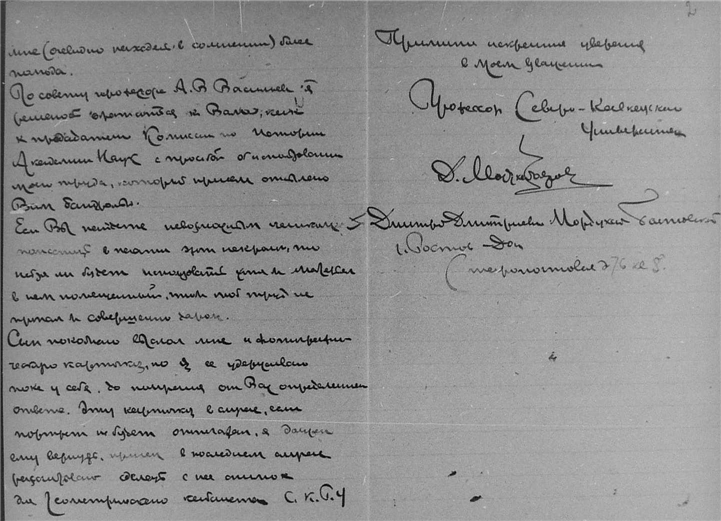 мне (очевидно находясь в сомнении) более
полода.
По совету профессора А. В. Васильева я
решаюсь обратиться к Вам, как
к председателю Комиссии по Истории
Академии Наук с просьбой об использовании
моего труда, который при сем отослано
Вам бандероль.
Если Вы найдете невозможным
поместить в печати этот некролог, то
нельзя ли будет использовать хотя материал
в нем помещенный, чтоб мой труд не
пропал совершенно даром.
Сын покойного выслал мне и фотографи-
ческую карточку, но я ее удерживаю
пока у себя, до получения от Вас определенного
ответа. Эту карточку в случае, если
портрет не будет отпечатан, я должен
ему вернуть, причем в последнем случае
сделать с нее снимок
для Геометрического кабинета С. К. Г. У
2
Примите искренние уверения
в моем уважении
Профессор Северо-Кавказского
Университета
Д. Мордухай-Болтовской
Дмитрий Дмитриевич Мордухай-Болтовской
г. Ростов-Дон
Старопочтовая д 76 кв 8.